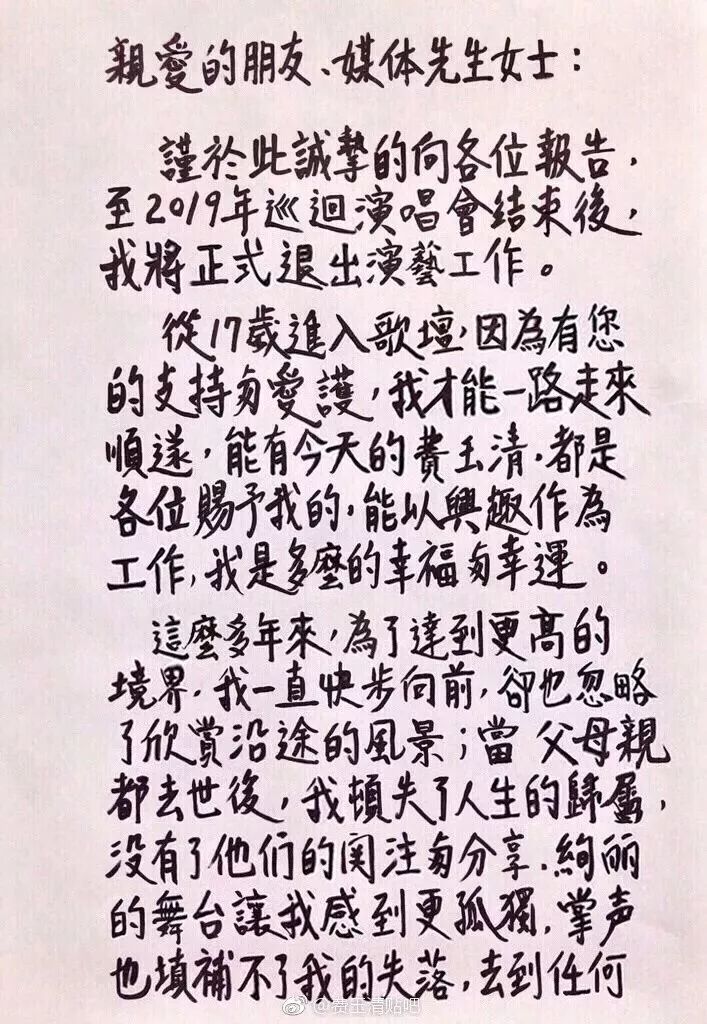 親愛的朋友、媒体先生女士：
謹於此誠摯的向各位報告，
至2019年巡迴演唱會结束後，
我將正式退出演藝工作。
從17歲進入歌壇，因為有您
的支持匆愛護，我才能一路走來
順遂，能有今天的費玉清，都是
各位賜予我的，能以興趣作為
工作，我是多麼的幸福匆幸運。
這麼多年來，為了達到更高的
境界，我一直快步向前，卻也忽略
了欣赏沿途的風景；當父母親
都去世後，我頓失了人生的歸屬，
没有了他们的関注匆分享，絢丽
的舞台讓我感到更孤獨，掌声
也填補不了我的失落，去到任何
@费玉清贴吧